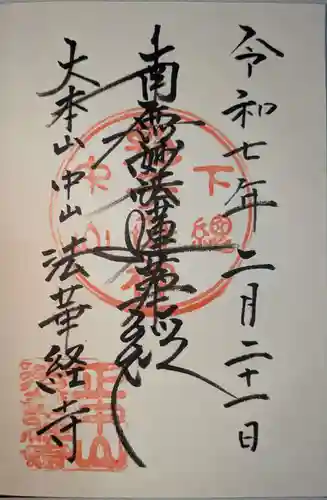 令和七年二月二十一日
南無妙法蓮華経
大本山中山法華経寺
下總